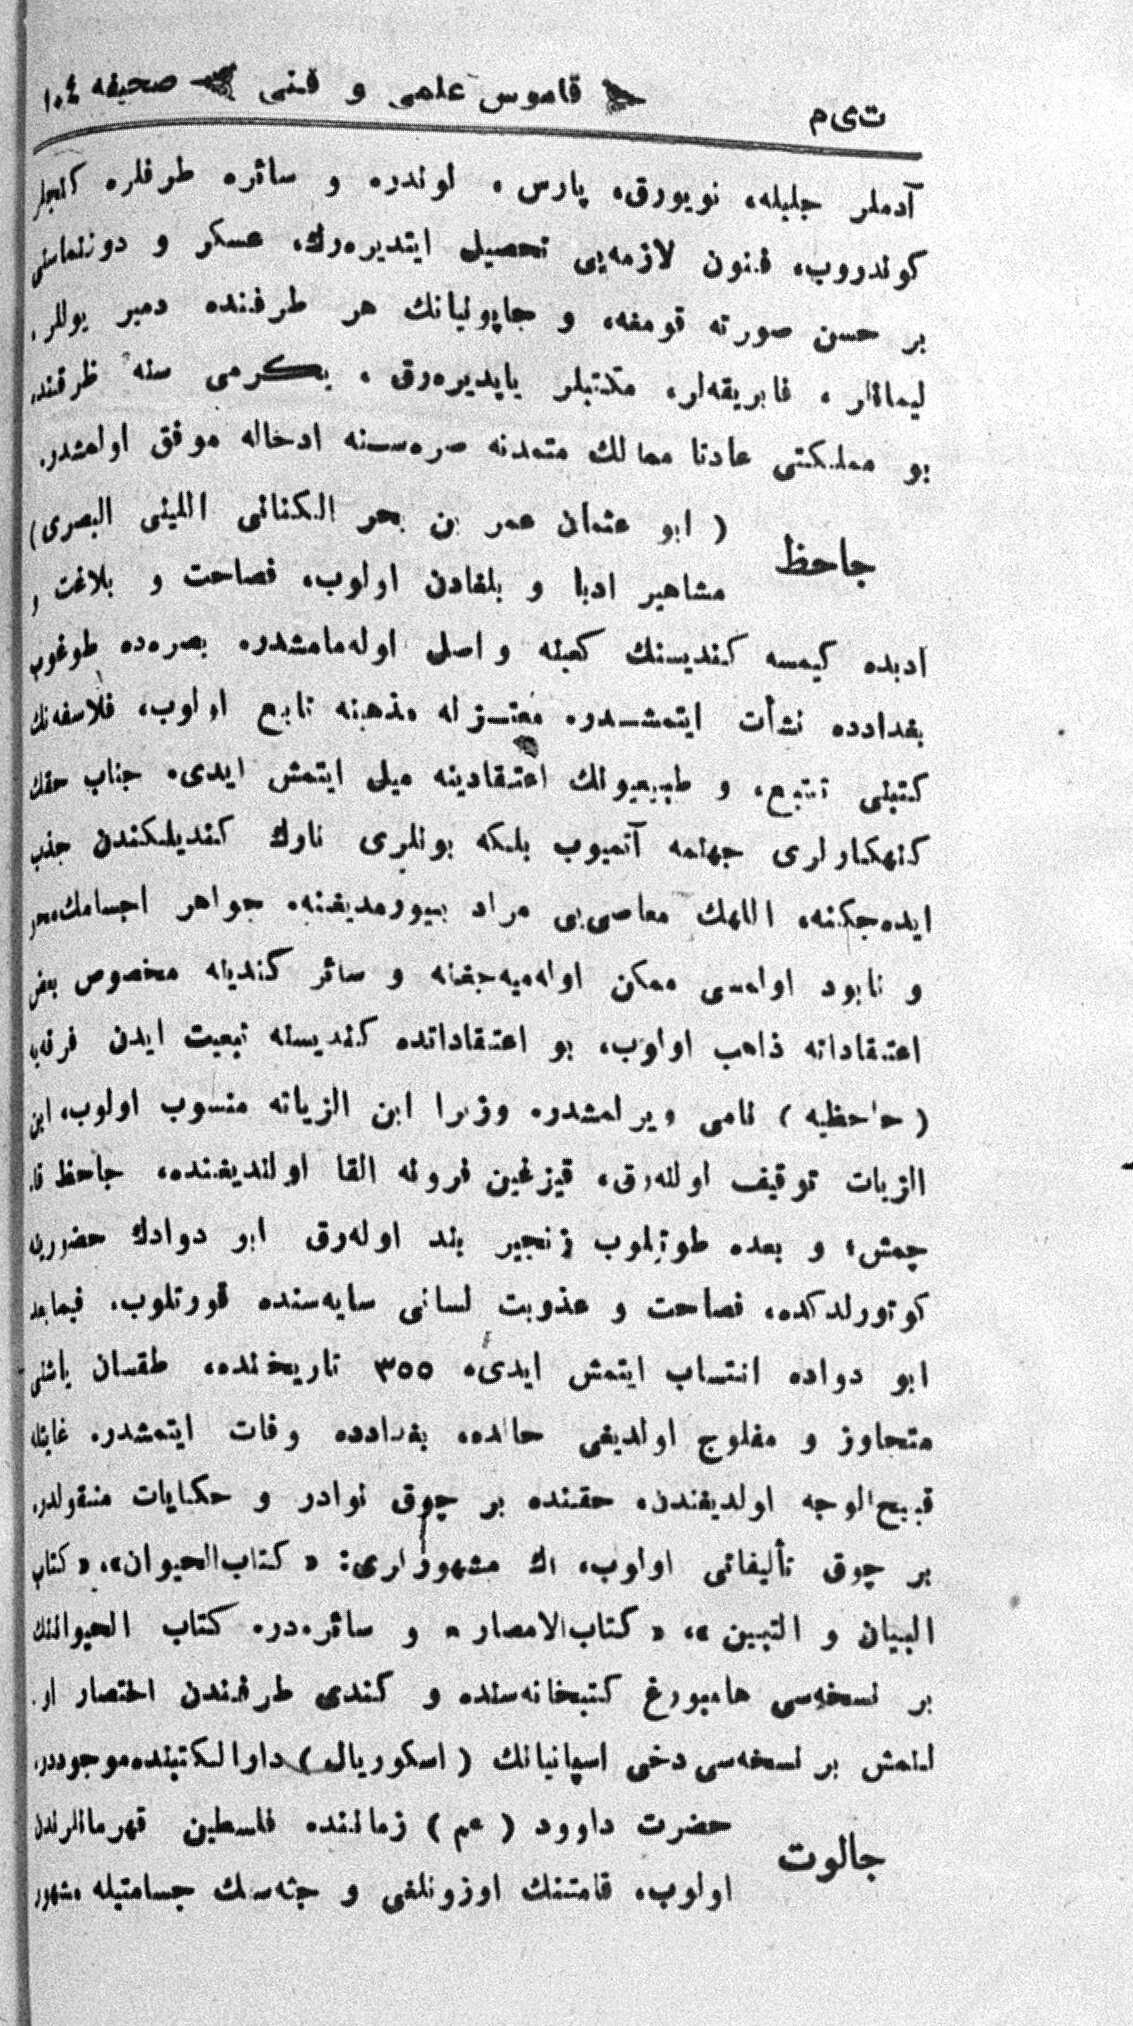 ت‌ی‌م قاموس علمی و فنی صحیفه ١٠٤
آدملر جلبله، نویورق، پارس، لوندره و سائره طرفلره کنجلر
کوندروب، فنون لازمه‌یی تحصیل ایتدیره‌رك، عسکر و دوننماسنی
بر حسن صورته قومغه، و جاپونیانك هر طرفنده دمیر یوللر،
لیمانلر، فابریقه‌لر، مکتبلر یاپدیره‌رق، یکرمی سنه ظرفنده
بو مملکتی عادتا ممالك متمدنه صره‌سنه ادخاله موفق اولمشدر.
( ابو عثمان عمر بن بحر الکنانی اللیثی البصری)
جاحظ
مشاهیر ادبا و بلغادن اولوب، فصاحت و بلاغت و
ادبده کیمسه کندیسنك کعبنه واصل اوله‌مامشدر. بصره‌ده طوغوب
بغدادده نشأت ایتمشدر. معتزله مذهبنه تابع اولوب، فلاسفه‌نك
کتبنی تتبع، و طبیعیونك اعتقادینه میل ایتمش ایدی. جناب حقك
کنهکارلری جهنمه آتمیوب بلکه بونلری نارك کندیلکندن جذب
ایده‌جکنه، اللهك معاصی‌یی مراد بیورمدیغنه، جواهر اجسامك محو
و نابود اولمسی ممکن اوله‌میه‌جغنه و سائر کندینه مخصوص بعض
اعتقاداته ذاهب اولوب، بو اعتقاداتده کندیسنه تبعیت ایدن فرقه‌یه
( جاحظیه ) نامی ویرلمشدر. وزرا ابن الزیاته منسوب اولوب، ابن
الزیات توقیف اولنه‌رق، قیزغین فرونه القا اولندیغنده، جاحظ قا
چمش؛ و بعده طوتیلوب زنجیر بند اوله‌رق ابو دوادك حضورینه
کوتورلدکده، فصاحت و عذوبت لسانی سایه‌سنده قورتلوب. فیمابعد
ابو دواده انتساب ایتمش ایدی. ٣٥٥ تاریخنده، طقسان یاشنی
متجاوز و مفلوج اولدیغی حالده، بغدادده وفات ایتمشدر. غایتله
قبیح‌الوجه اولدیغندن، حقنده بر چوق نوادر و حکایات منقولدر.
بر چوق تألیفاتی اولوب، اك مشهورلری: « کتاب‌الحیوان»، « کتاب
البیان و التبیین »، « کتاب‌الامصار » و سائره‌در. کتاب الحیواننك
بر نسخه‌سی هامبورغ کتبخانه‌سنده و کندی طرفندن اختصار او
لنمش بر نسخه‌سی دخی اسپانیانك ( اسکوریال ) دارالکتبنده‌موجوددر.
حضرت داوود ( عم ) زماننده فلسطین قهرمانلرندن
جالوت
اولوب، قامتنك اوزونلغی و جثه‌سنك جسامتیله مشهور